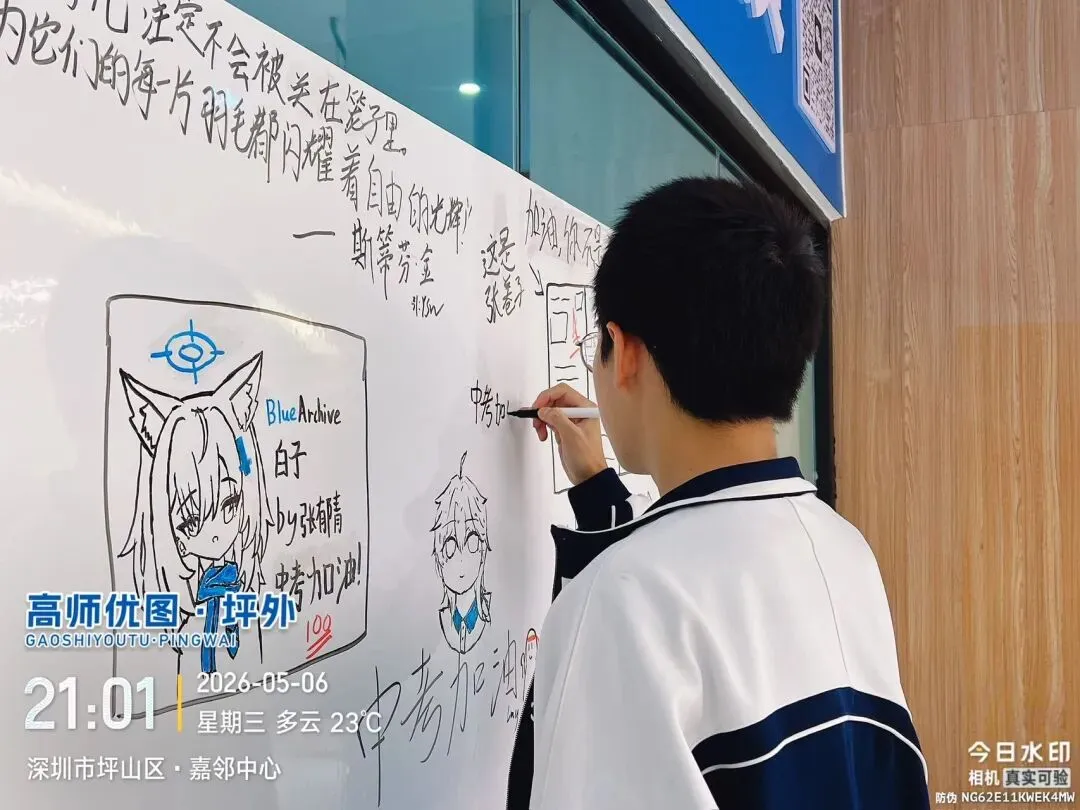 注定不会被关在笼子里。
为它们的每一片羽毛都闪耀着自由的光辉!
— 斯蒂芬·金
这是
张卷子
加油,你不是
中考加
BlueArchive
白子
by张郁晴
中考加油!
100
中考加油
高师优图·坪外
GAOSHIYOUTU·PINGWAI
21:01
2026-05-06
星期三 多云 23℃
深圳市坪山区·嘉邻中心
今日水印
相机 真实可验
防伪 NG62E11KWEK4MW